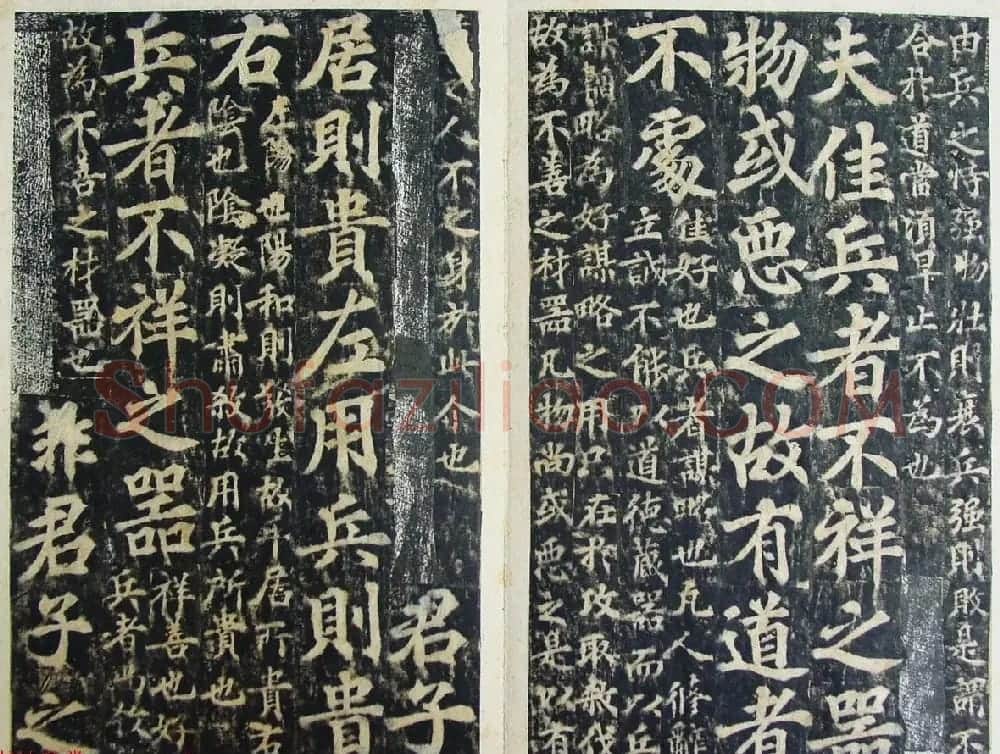 由兵之恃强物壯則衰兵强則敗是謂不
合於道當須早止不為也
夫佳兵者不祥之器
物或惡之故有道者
不處
佳好也兵者謀略也凡人脩辭
立誠不能以道德藏器而以兵
韜略為好謀略之用只在於攻取殺伐
故為不善之材器凡物尚或惡之是以有
人不之身於此也
君子
居則貴左用兵則貴
右
左陽也陽和則發生故平居所貴右
陰也陰凝則肅殺故用兵所貴也
兵者不祥之器
祥善也好
兵者尚
故為不善之材器也
非君子之
Shufaziliao.COM